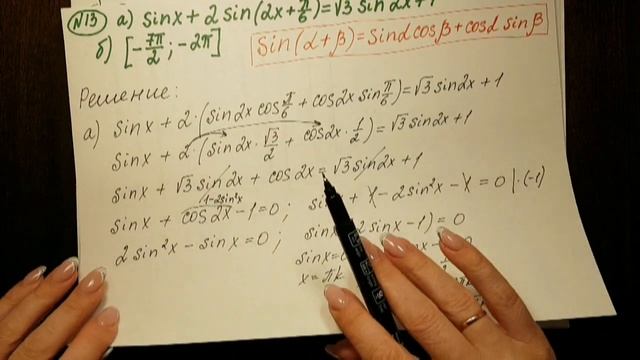 N13 а) sinx + 2 sin(2x+π/6)=√3 sin2x+1
б) [-7π/2; -2π]
sin(α+β)=sinαcosβ+cosα sinβ
Решение:
а) sinx + 2·(sin2x cos π/6 + cos2x sin π/6)=√3 sin2x+1
sinx + 2·(sin2x·√3/2 + cos2x·1/2)=√3 sin2x+1
sinx + √3 sin2x + cos2x=√3 sin2x+1
1-2sin²x
sinx + cos2x -1=0; sin + 1-2sin²x-1=0 |·(-1)
2sin²x - sinx=0; sinx 2sinx-1)=0
sinx=
x=πk